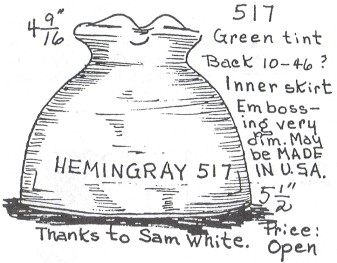 4 9/16"
517
Green tint
Back 10-46 ?
Inner skirt
Emboss-
ing very
dim. May
be MADE
IN U.S.A.
HEMINGRAY 517
5 1/2"
Thanks to Sam White.
Price:
Open